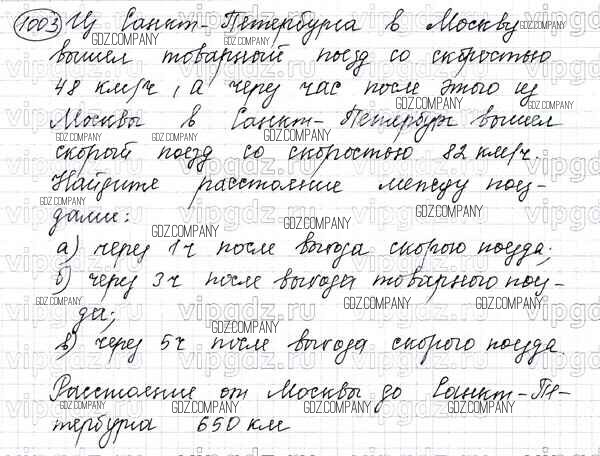 1003 Из Санкт-Петербурга в Москву
вышел товарный поезд со скоростью
48 км/ч, а через час после этого из
Москвы в Санкт-Петербург вышел
скорый поезд со скоростью 82 км/ч.
Найдите расстояние между поез-
дами:
а) через 1ч после выхода скорого поезда;
б) через 3ч после выхода товарного поез-
да;
в) через 5ч после выхода скорого поезда.
Расстояние от Москвы до Санкт-Пе-
тербурга 650 км